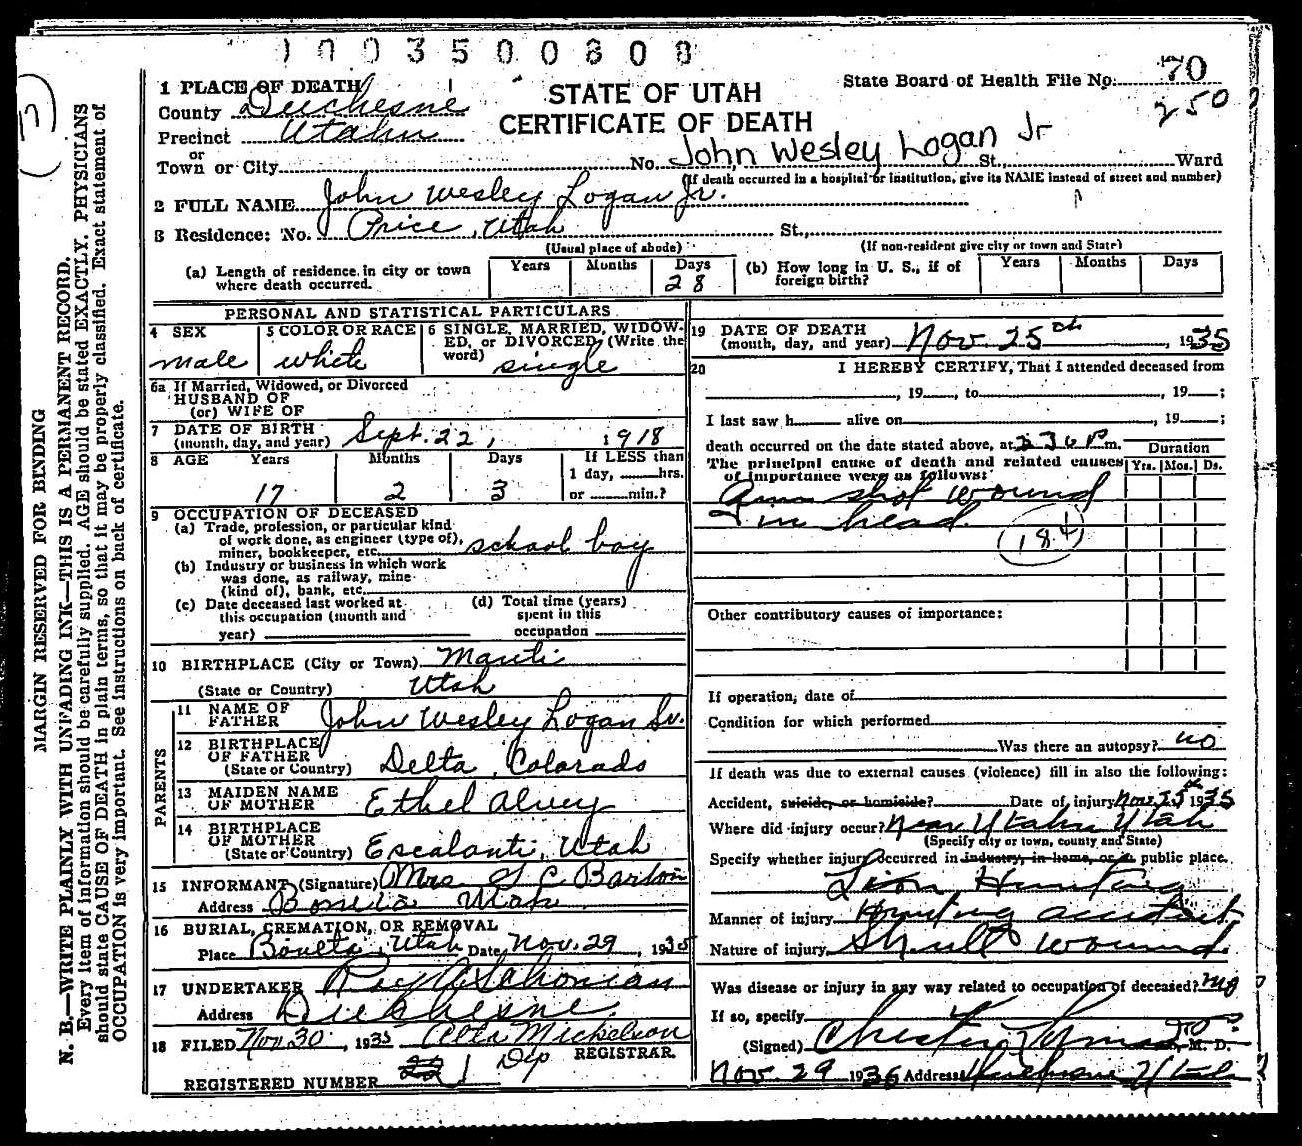 1003500808
1 PLACE OF DEATH
STATE OF UTAH
CERTIFICATE OF DEATH
State Board of Health File No. 70
250
County Duchesne
Precinct Utahn
Town or City No. John Wesley Logan Jr St., Ward
(If death occurred in a hospital or institution, give its NAME instead of street and number)
2 FULL NAME John Wesley Logan Jr.
3 Residence: No. Price, Utah St.,
(Usual place of abode) (If non-resident give city or town and State)
(a) Length of residence in city or town where death occurred. Years Months Days 28
(b) How long in U. S., if of foreign birth? Years Months Days
MARGIN RESERVED FOR BINDING
N. B.—WRITE PLAINLY WITH UNFADING INK—THIS IS A PERMANENT RECORD.
Every item of information should be carefully supplied. AGE should be stated EXACTLY. PHYSICIANS
should state CAUSE OF DEATH in plain terms, so that it may be properly classified. Exact statement of
OCCUPATION is very important. See instructions on back of certificate.
PERSONAL AND STATISTICAL PARTICULARS
4 SEX male
5 COLOR OR RACE white
6 SINGLE, MARRIED, WIDOWED, or DIVORCED (Write the word) single
6a If Married, Widowed, or Divorced
HUSBAND OF
(or) WIFE OF
7 DATE OF BIRTH
(month, day, and year) Sept. 22, 1918
8 AGE Years Months Days If LESS than
1 day, hrs.
17 2 3 or min.?
9 OCCUPATION OF DECEASED
(a) Trade, profession, or particular kind
of work done, as engineer (type of),
miner, bookkeeper, etc. school boy
(b) Industry or business in which work
was done, as railway, mine
(kind of), bank, etc.
(c) Date deceased last worked at
this occupation (month and
year)
(d) Total time (years)
spent in this
occupation
10 BIRTHPLACE (City or Town) Manti
(State or Country) Utah
PARENTS
11 NAME OF
FATHER John Wesley Logan Sr.
12 BIRTHPLACE
OF FATHER
(State or Country) Delta, Colorado
13 MAIDEN NAME
OF MOTHER Ethel Alvey
14 BIRTHPLACE
OF MOTHER
(State or Country) Escalanti, Utah
15 INFORMANT (Signature) Mrs Barton
Address Utah
16 BURIAL, CREMATION, OR REMOVAL
Place Utah Date Nov. 29, 1935
17 UNDERTAKER
Address Duchesne.
18 FILED Nov 30, 1935 Alta Mickelson
Dep REGISTRAR.
REGISTERED NUMBER 1
19 DATE OF DEATH
(month, day, and year) Nov. 25th, 1935
20 I HEREBY CERTIFY, That I attended deceased from
, 19 , to , 19 ;
I last saw h alive on , 19 ;
death occurred on the date stated above, at 230 P m.
The principal cause of death and related causes
of importance were as follows:
Duration
Yrs. Mos. Ds.
Gun shot wound
in head
184
Other contributory causes of importance:
If operation, date of
Condition for which performed
Was there an autopsy? no
If death was due to external causes (violence) fill in also the following:
Accident, suicide, or homicide? Date of injury Nov 25th 1935
Where did injury occur? Near Utahn Utah
(Specify city or town, county and State)
Specify whether injury occurred in industry, in home, or in public place.
Lion Hunting
Manner of injury Hunting accident.
Nature of injury Skull wound.
Was disease or injury in any way related to occupation of deceased? no
If so, specify
(Signed) M. D.
Nov. 29 1935 Address Utah